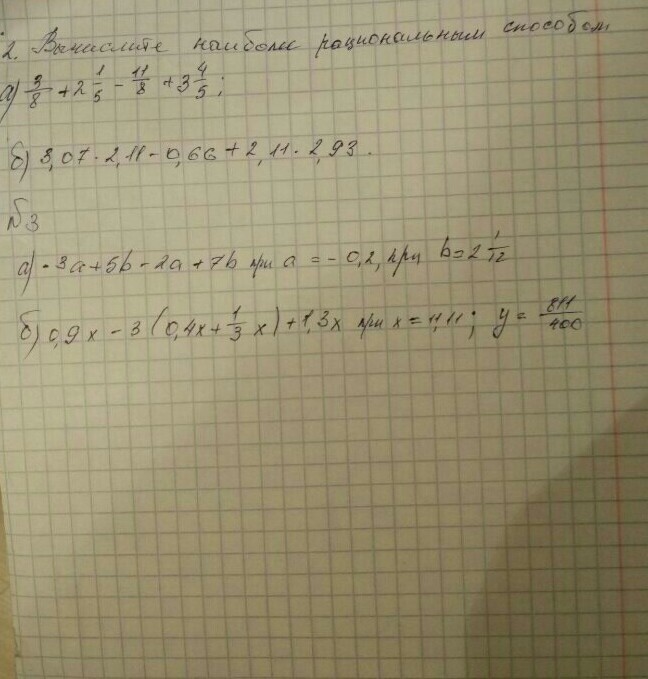 2. Вычислите наиболее рациональным способом
а) 3/8 + 2 1/5 - 11/8 + 3 4/5;
б) 3,07 · 2,11 - 0,66 + 2,11 · 2,93.
№3
а) -3a+5b-2a+7b при a = -0,2, при b=2 1/12
б) 0,9x - 3(0,4x + 1/3 x) + 1,3x при x = 11,11; y = 811/400